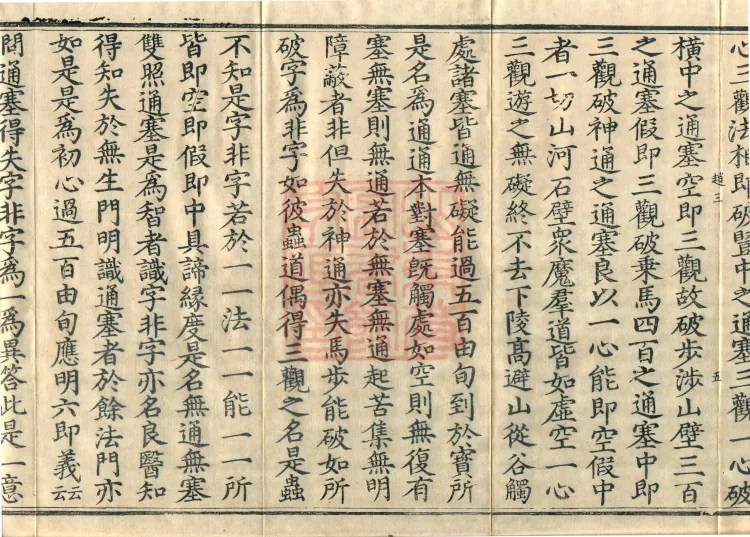 心三觀法相即破豎中之通塞三觀一心破
橫中之通塞空即三觀故破步涉山壁三百
之通塞假即三觀破乘馬四百之通塞中即
三觀破神通之通塞良以一心能即空假中
者一切山河石壁衆魔羣道皆如虛空一心
三觀遊之無礙終不去下陵高避山從谷觸
處諸塞皆通無礙能過五百由旬到於寶所
是名爲通通本對塞旣觸處如空則無復有
塞無塞則無通若於無塞無通起苦集無明
障蔽者非但失於神通亦失馬步能破如所
破字爲非字如彼蟲道偶得三觀之名是蟲
不知是字非字若於一一法一一能一一所
皆即空即假即中具諦緣度是名無通無塞
雙照通塞是爲智者識字非字亦名良醫知
得知失於無生門明識通塞者於餘法門亦
如是是爲初心過五百由旬應明六即義云云
問通塞得失字非字爲一爲異答此是一意
趙三
五